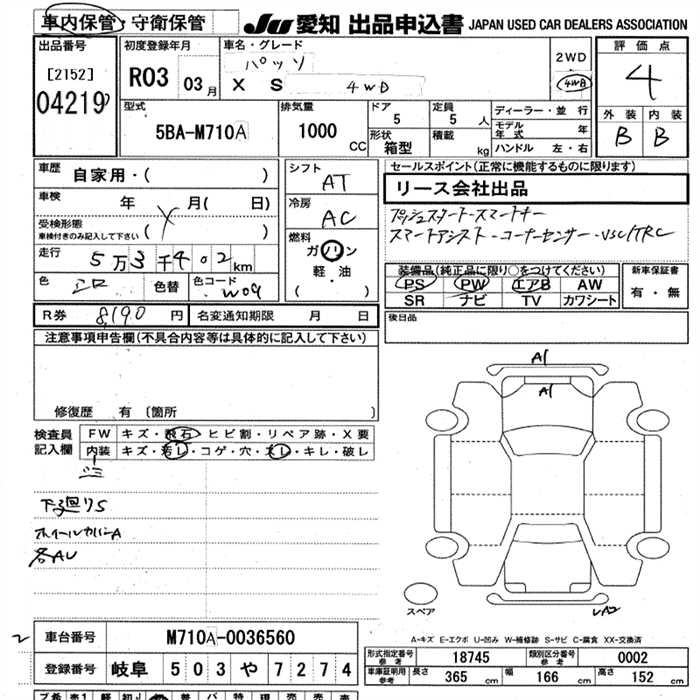 車内保管・守衛保管
JU 愛知 出品申込書 JAPAN USED CAR DEALERS ASSOCIATION
出品番号
[2152]
04219
初度登録年月
R03 03月
車名・グレード
パッソ
X S 4WD
2WD
4WD
評価点
4
外装 内装
B B
型式
5BA-M710A
排気量
1000 CC
ドア
5
形状
箱型
定員
5人
積載
kg
ディーラー・並行
モデル年式 年
ハンドル 左・右
車歴
自家用・( )
車検 年 月( 日)
受検形態
車検付きのみ記入して下さい
走行
5万3千402km
色 色替 色コード
W09
シフト
AT
冷房
AC
燃料
ガソリン
軽・油
( )
セールスポイント(正常に機能するものに限ります)
リース会社出品
プッシュスタート・スマートキー
スマートアシスト・コーナーセンサー・VSC/TRC
装備品(純正品に限り○をつけてください)
PS PW エアB AW
SR ナビ TV カワシート
新車保証書
有・無
R券 8,190円 名変通知期限 月 日
後日品
注意事項申告欄(不具合内容等は具体的に記入して下さい)
修復歴 有〔箇所 〕
検査員記入欄
FW キズ・飛石・ヒビ割・リペア跡・X要
内装 キズ・汚レ・コゲ・穴・スレ・キレ・破レ
下廻りS
ホイールカバーA
各AU
A1
A1
UA2
スペア
A-キズ E-エクボ U-凹み W-補修跡 S-サビ C-腐食 XX-交換済
2
車台番号 M710A-0036560
登録番号 岐阜 503 や 7274
形式指定番号 参考 18745 類別区分番号 参考 0002
車庫証明用 参考 長さ 365 cm 幅 166 cm 高さ 152 cm